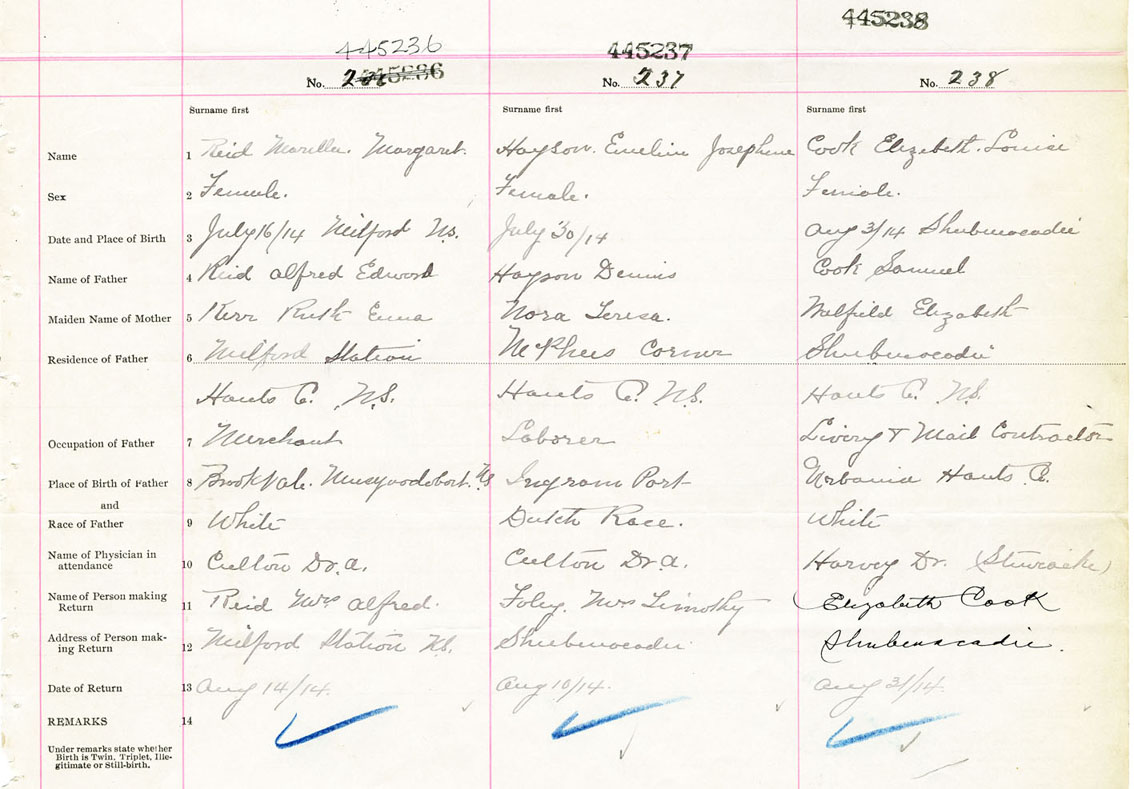 445236 445237 445238
No. 236 445236 No. 237 No. 238
Surname first Surname first Surname first
Name 1 Reid Marilla. Margaret. Hayson. Emeline Josephine Cook Elizebeth. Louise
Sex 2 Female. Female. Female.
Date and Place of Birth 3 July 16/14 Milford N.S. July 30/14 Aug 3/14 Shubenocadie
Name of Father 4 Reid Alfred Edword Hayson Dennis Cook Samuel
Maiden Name of Mother 5 Kerr Ruth Emma Nora Teresa. Elizabeth
Residence of Father 6 Milford Station McPhees Corner Shubenocadie
Hants C. N.S. Hants C. N.S. Hants C. N.S.
Occupation of Father 7 Merchant Laborer Livery & Mail Contractor
Place of Birth of Father 8 Brookvale. N.S. Ingram Port Urbania Hants C.
and
Race of Father 9 White Dutch Race. White
Name of Physician in
attendance 10 Culton Dr. A. Culton Dr. A. Harvey Dr.
Name of Person making
Return 11 Reid Mrs Alfred. Foley. Mrs Timothy (Elizabeth Cook
Address of Person mak-
ing Return 12 Milford Station N.S. Shubenocadie Shubenacadie.
Date of Return 13 Aug 14/14. Aug 10/14. Aug 31/14.
REMARKS 14
Under remarks state whether
Birth is Twin, Triplet, Ille-
gitimate or Still-birth.